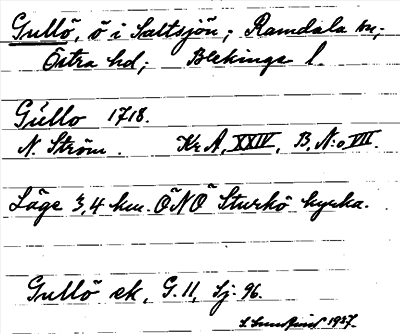 Gullö, ö i Saltsjön; Ramdala sn;
Östra hd; Blekinge l.
Gúllo 1718.
N. Ström. Kr A, XXIV, B, N:o VII.
Läge 3,4 km. ÖNÖ Sturkö kyrka.
Gullö ek, G. 11, Sj. 96.
1927.